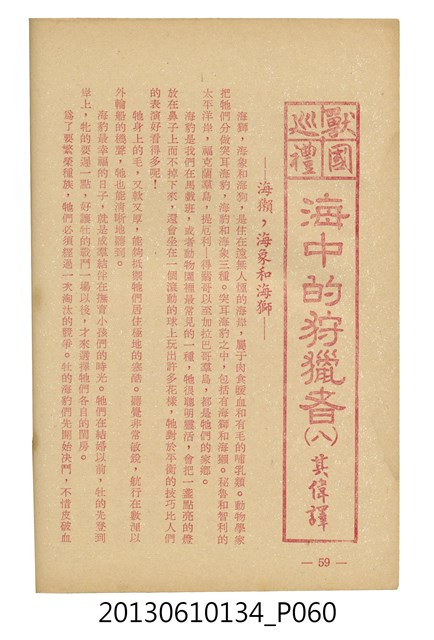 獸國巡禮
海中的狩獵者(八)
其偉譯
—海獺，海象和海獅—
海獅，海象和海狗，是住在遠無人煙的海岸，屬于肉食熱血和有毛的哺乳類。動物學家
把牠們分做突耳海豹，海豹和海象三種。突耳海豹之中，包括有海獅和海獺。秘魯和智利的
太平洋岸，福克蘭羣島，提厄利—得爾哥以至加拉巴哥羣島，都是牠們的家鄉。
海豹是我們在馬戲班，或者動物園裡最常見的一種，牠很聰明靈活，會把一盞點亮的燈
放在鼻子上面不掉下來，還會坐在一個滾動的球上玩出許多花樣，牠對於平衡的技巧比人們
的表演好看得多呢！
牠身上的毛，又軟又厚，能夠抵禦牠們居住極地的寒酷。聽覺非常敏銳，航行在數浬以
外輪船的機聲，牠也能清晰地聽到。
海豹最幸福的日子，就是成羣結伴在撫育小孩們的時光。牠們在結婚以前，牡的先登到
岸上，牝的要遲一點，好讓牡的戰鬥一場以後，才來選擇牠們各自的閨房。
爲了要繁榮種族，牠們必須經過一次淘汰的戰爭。牡的海豹們先開始決鬥，不惜皮破血
— 59 —
20130610134_P060